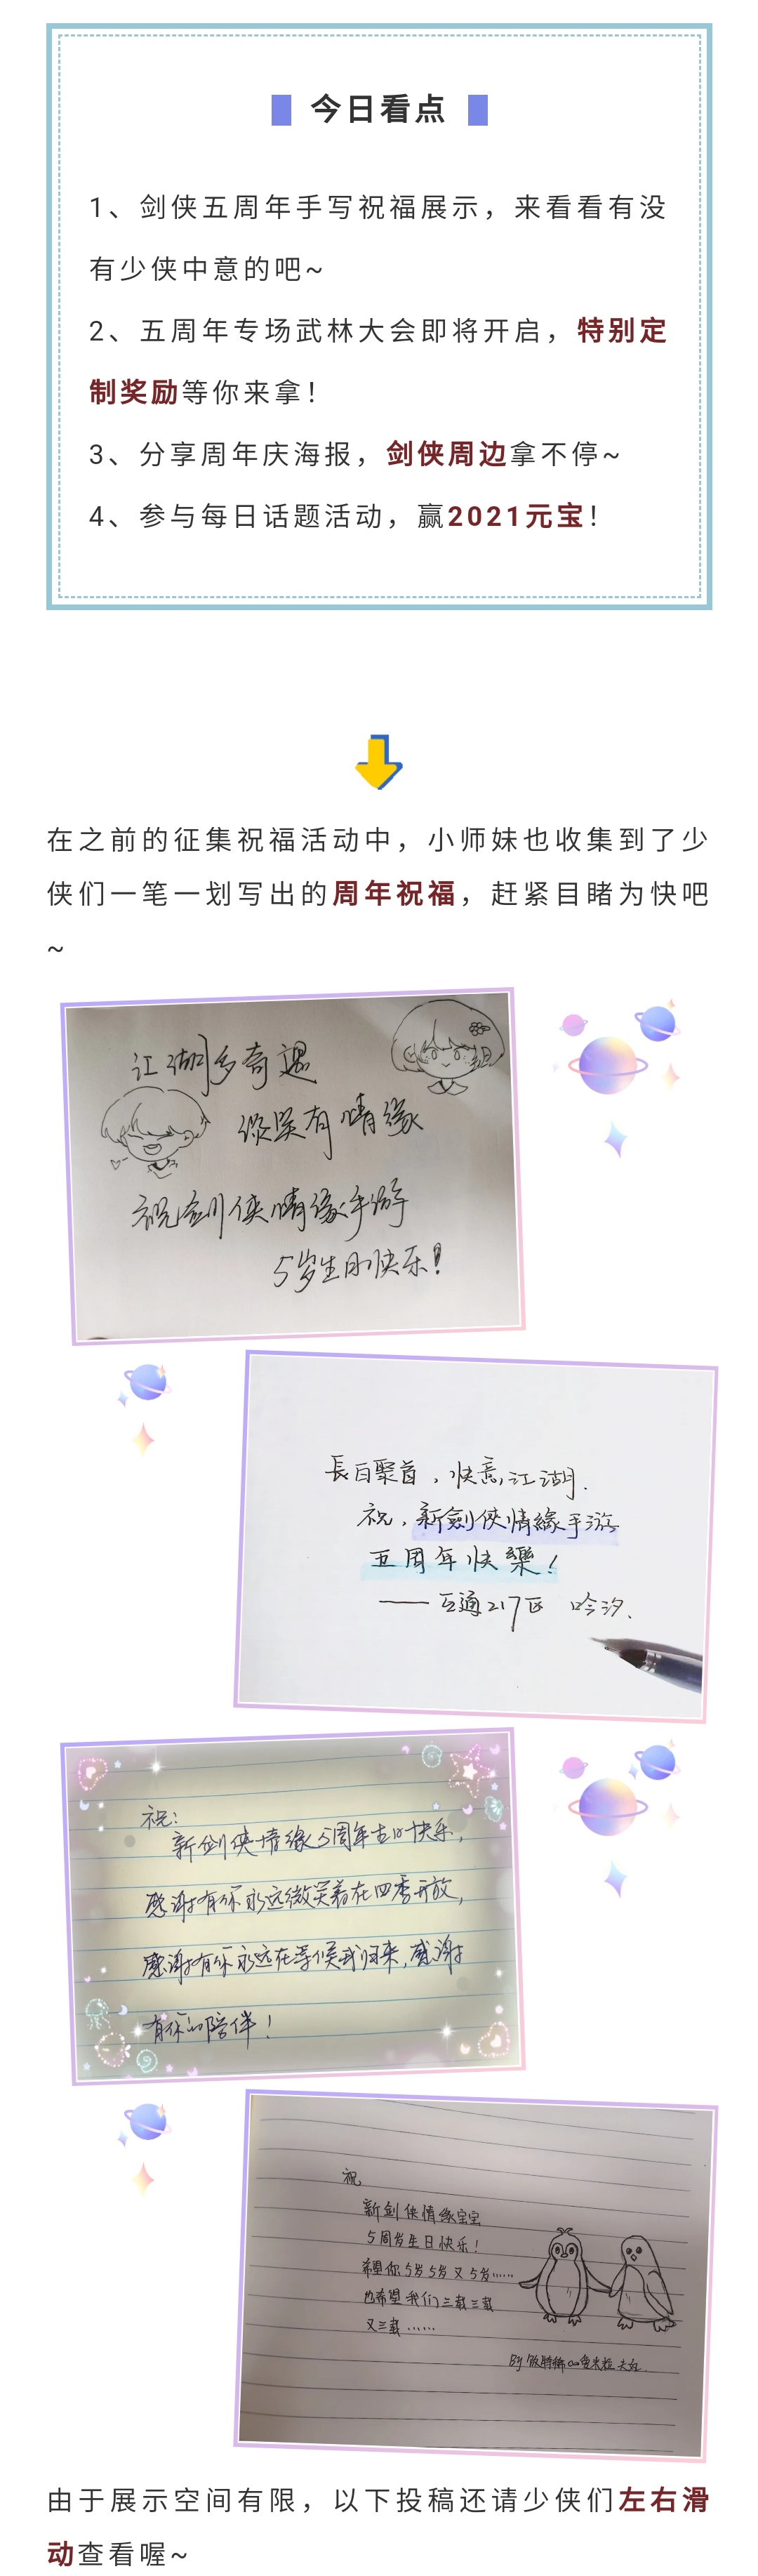 今日看点
1、剑侠五周年手写祝福展示，来看看有没
有少侠中意的吧~
2、五周年专场武林大会即将开启，特别定
制奖励等你来拿！
3、分享周年庆海报，剑侠周边拿不停~
4、参与每日话题活动，赢2021元宝！
在之前的征集祝福活动中，小师妹也收集到了少
侠们一笔一划写出的周年祝福，赶紧目睹为快吧
~
江湖多奇遇
你我有情缘
祝剑侠情缘手游
5岁生日快乐！
長日聚首，快意江湖.
祝，新劍俠情緣手游
五周年快樂！
——互通217区 吟汐、
祝：
新剑侠情缘5周年生日快乐，
感谢有你永远微笑着在四季开放，
感谢有你永远在等候我归来，感谢
有你的陪伴！
祝
新剑侠情缘宝宝
5周岁生日快乐！
希望你5岁5岁又5岁……
也希望我们三载三载
又三载……
By
由于展示空间有限，以下投稿还请少侠们左右滑
动查看喔~